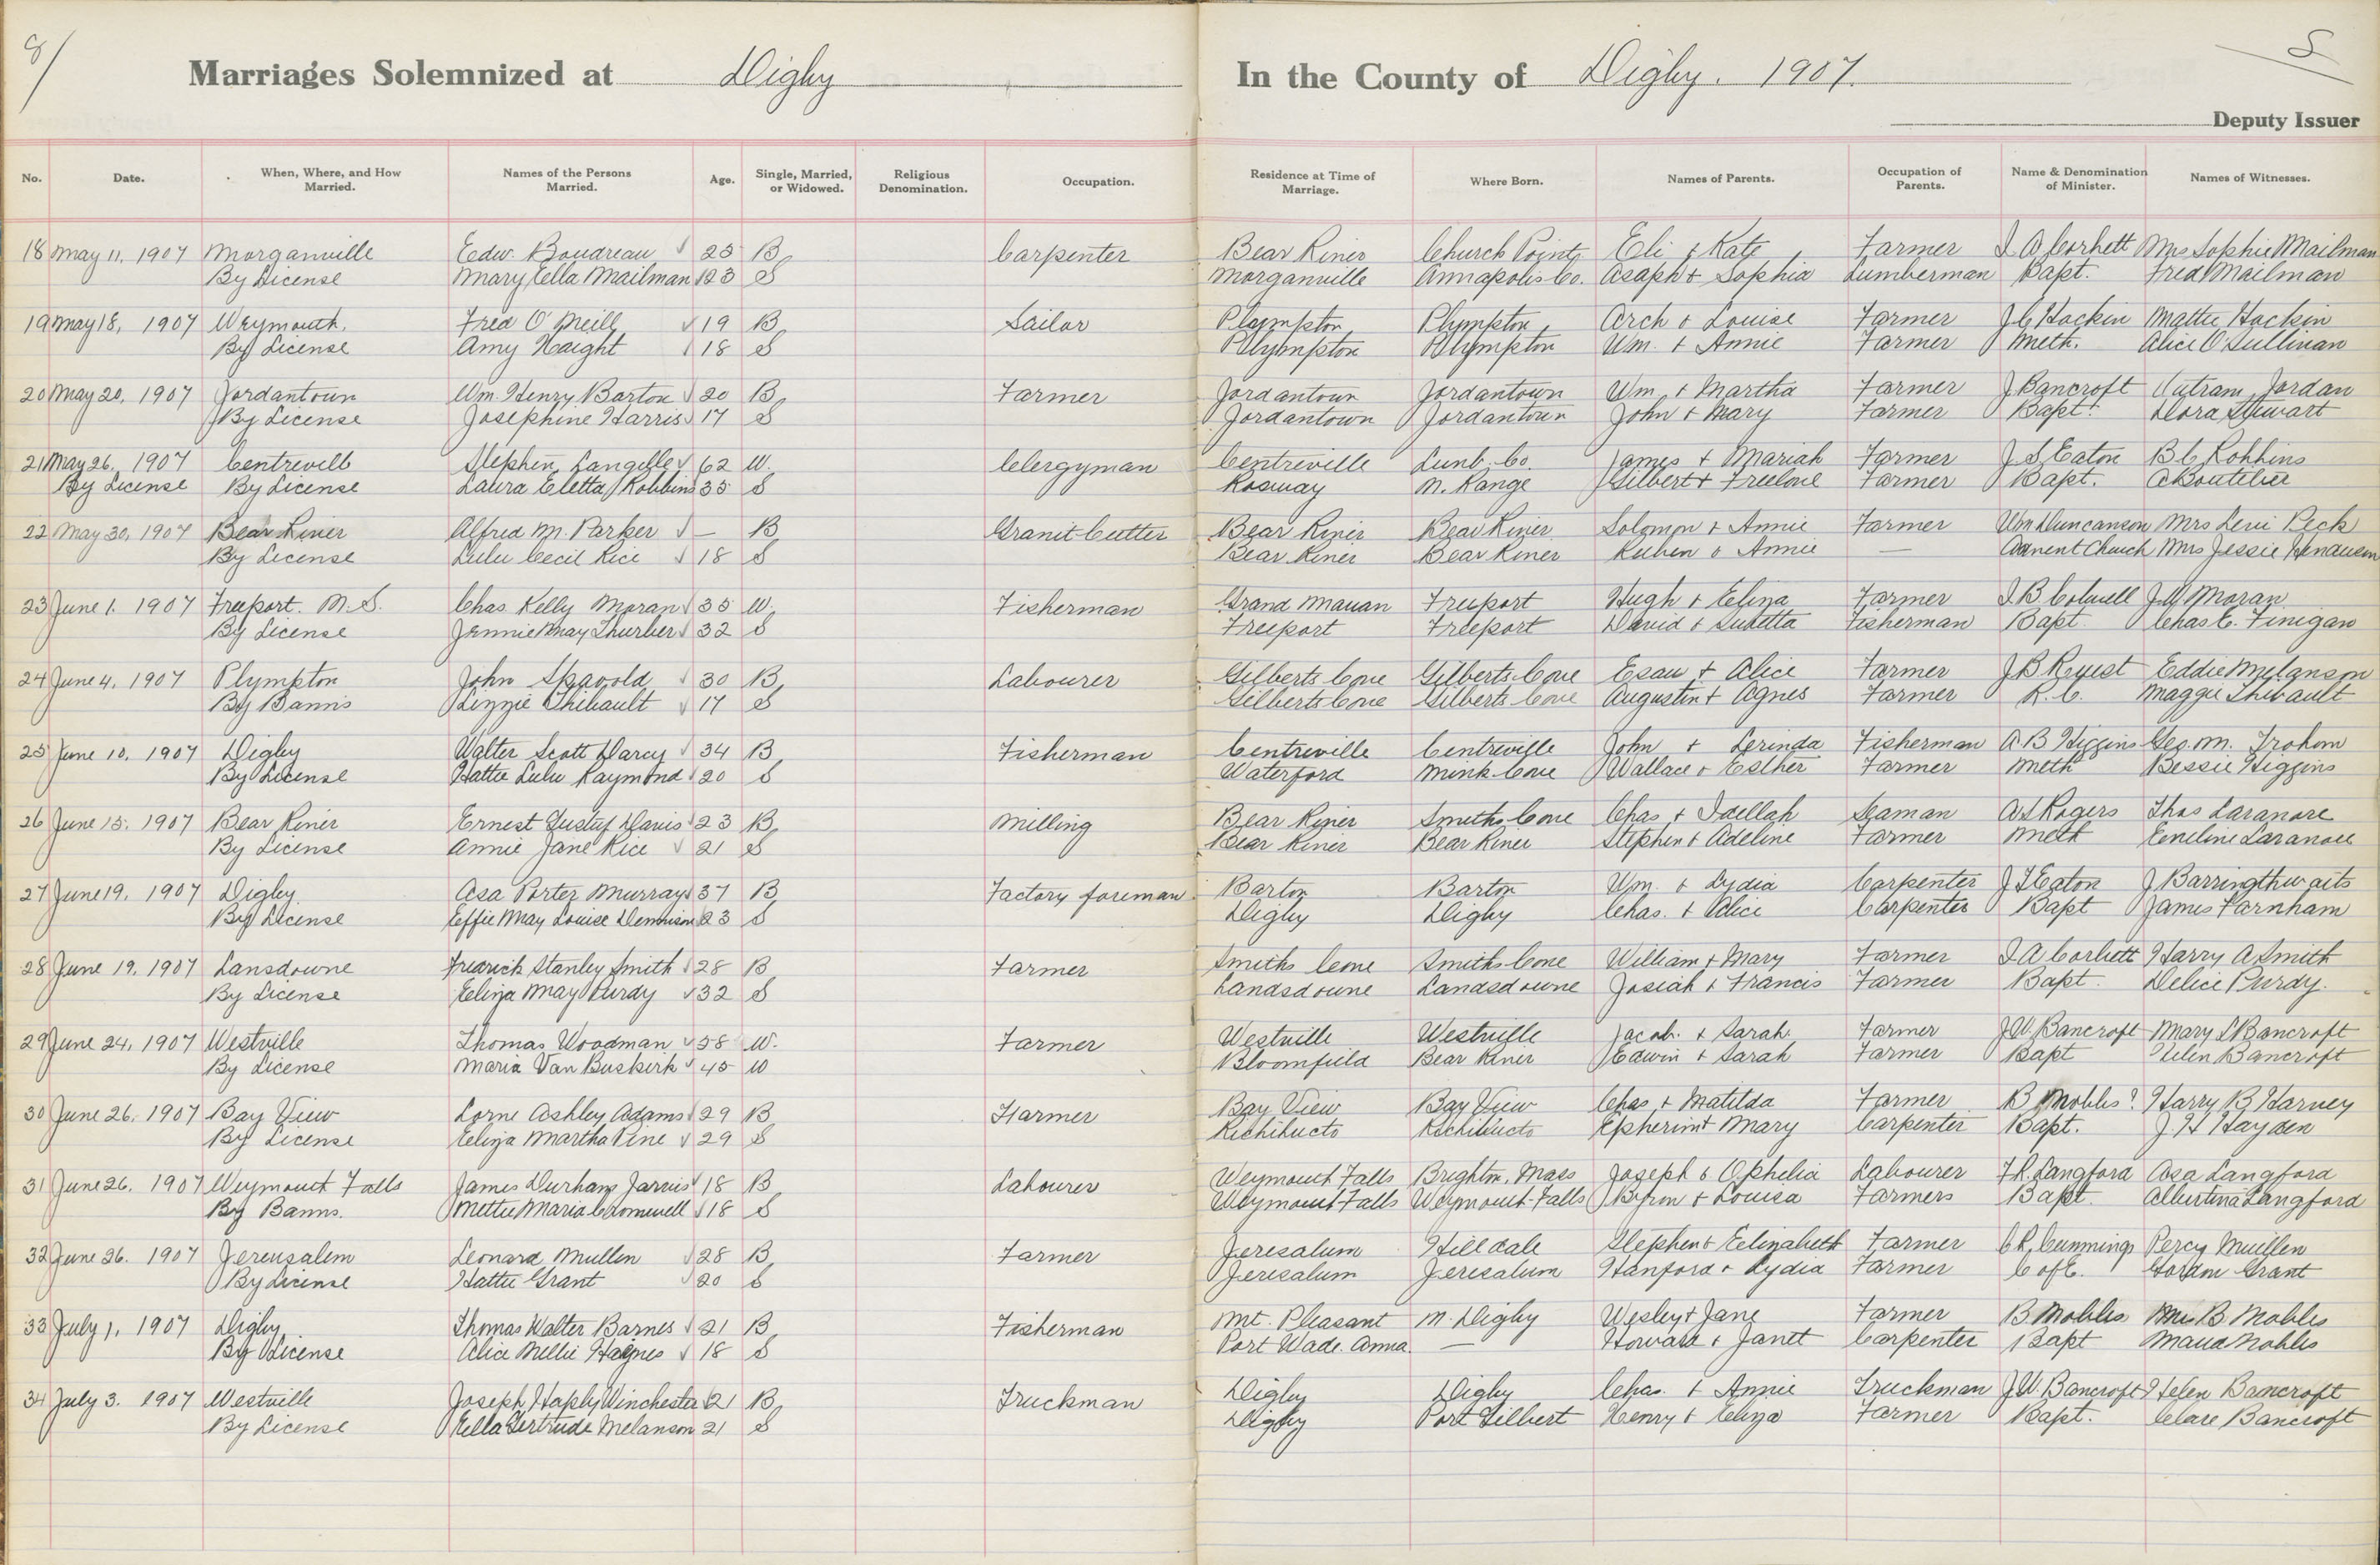 8/
Marriages Solemnized at Digby In the County of Digby. 1907.
Deputy Issuer
No. Date. When, Where, and How Married. Names of the Persons Married. Age. Single, Married, or Widowed. Religious Denomination. Occupation. Residence at Time of Marriage. Where Born. Names of Parents. Occupation of Parents. Name & Denomination of Minister. Names of Witnesses.
18 May 11, 1907 Morganville Edw. Boudreau 25 B Carpenter Bear River Church Point Eli & Kate Farmer I A Corbett Mrs Sophie Mailman
By License Mary Ella Mailman 23 S Morganville Annapolis Co. Asaph & Sophia Lumberman Bapt. Fred Mailman
19 May 18, 1907 Weymouth. Fred O'Neill 19 B Sailor Plympton Plympton Arch & Louise Farmer J C Hockin Mattie Hockin
By License Amy Haight 18 S Plympton Plympton Wm. & Annie Farmer Meth. Alice O'Sullivan
20 May 20, 1907 Jordantown Wm. Henry Barton 20 B Farmer Jordantown Jordantown Wm. & Martha Farmer J Bancroft Outram Jordan
By License Josephine Harris 17 S Jordantown Jordantown John & Mary Farmer Bapt. Dora Stewart
21 May 26, 1907 Centrevill Stephen Langille 62 W. Clergyman Centreville Lunb. Co. James & Mariah Farmer J S Eaton B C Robbins
By License By License Laura Eletta Robbins 35 S Rosway N. Range Gilbert & Freelove Farmer Bapt. A Boutilier
22 May 30, 1907 Bear River Alfred M. Parker — B Granit Cutter Bear River Bear River Solomon & Annie Farmer Wm Duncanson Mrs Levi Peck
By License Lulu Cecil Rice 18 S Bear River Bear River Ruben & Annie — Advent Church Mrs Jessie
23 June 1. 1907 Freeport. N.S. Chas. Kelly Moran 35 W. Fisherman Grand Manan Freeport Hugh & Eliza Farmer I B Colwell J W Moran
By License Jennie May Thurber 32 S Freeport Freeport David & Susetta Fisherman Bapt Chas E. Finigan
24 June 4, 1907 Plympton John Spavold 30 B Labourer Gilberts Cove Gilberts Cove Esau & Alice Farmer J B Reyest Eddie Melanson
By Banns Lizzie Thibault 17 S Gilberts Cove Gilberts Cove Augustin & Agnes Farmer R. C. Maggie Thibault
25 June 10, 1907 Digby Walter Scott Darcy 34 B Fisherman Centreville Centreville John & Lorinda Fisherman A B Higgins Geo. M.
By License Hattie Lulu Raymond 20 S Waterford Mink Cove Wallace & Esther Farmer Meth Bessie Higgins
26 June 15, 1907 Bear River Ernest Gustaf Davis 23 B Milling Bear River Smiths Cove Chas & Idellah Seaman A S Rogers Thos Laramore
By License Annie Jane Rice 21 S Bear River Bear River Stephen & Adeline Farmer Meth Emeline Laramore
27 June 19, 1907 Digby Asa Porter Murray 37 B Factory foreman Barton Barton Wm. & Lydia Carpenter J S Eaton J Barringthwaits
By License Effie May Louise Dennison 23 S Digby Digby Chas. & Alice Carpenter Bapt James Farnham
28 June 19, 1907 Lansdowne Fredrick Stanley Smith 28 B Farmer Smiths Cove Smiths Cove William & Mary Farmer I A Corbett Harry A Smith
By License Eliza May Purdy 32 S Landsdowne Landsdowne Josiah & Francis Farmer Bapt. Delice Purdy.
29 June 24, 1907 Westville Thomas Woodman 58 W. Farmer Westville Westville Jacob. & Sarah Farmer J W. Bancroft Mary S Bancroft
By License Maria Van Buskirk 45 W Bloomfield Bear River Edwin & Sarah Farmer Bapt Helen Bancroft
30 June 26, 1907 Bay View Lorne Ashley Adams 29 B Farmer Bay View Bay View Chas & Matilda Farmer B Nobles? Harry B Harvey
By License Eliza Martha Pine 29 S Richibucto Richibucto Epherim & Mary Carpenter Bapt. J H Hayden
31 June 26, 1907 Weymouth Falls James Durham Jarvis 18 B Labourer Weymouth Falls Brighton, Mass Joseph & Ophelia Labourer F R. Langford Asa Langford
By Banns. Mettie Maria Cromwell 18 S Weymouth Falls Weymouth Falls Byron & Louisa Farmers Bapt. Albertina Langford
32 June 26. 1907 Jerensalem Leonard Mullen 28 B Farmer Jeresalum Hilldale Stephen & Eelizabeth Farmer C R. Cummings Percy Muillen
By License Hattie Grant 20 S Jeresalum Jeresalum Hanford & Lydia Farmer C of E. Gordon Grant
33 July 1, 1907 Digby Thomas Walter Barnes 21 B Fisherman Mt. Pleasant N. Digby Wesley & Jane Farmer B. Nobles Mrs B. Nobles
By License Alice Nellie Haynes 18 S Port Wade Anna. — Howard & Janet Carpenter Bapt Maud Nobles
34 July 3. 1907 Westville Joseph Haply Winchester 21 B Truckman Digby Digby Chas. & Annie Truckman J W. Bancroft Helen Bancroft
By License Ella Gertrude Melanson 21 S Digby Port Gilbert Henry & Eliza Farmer Bapt. Clare Bancroft